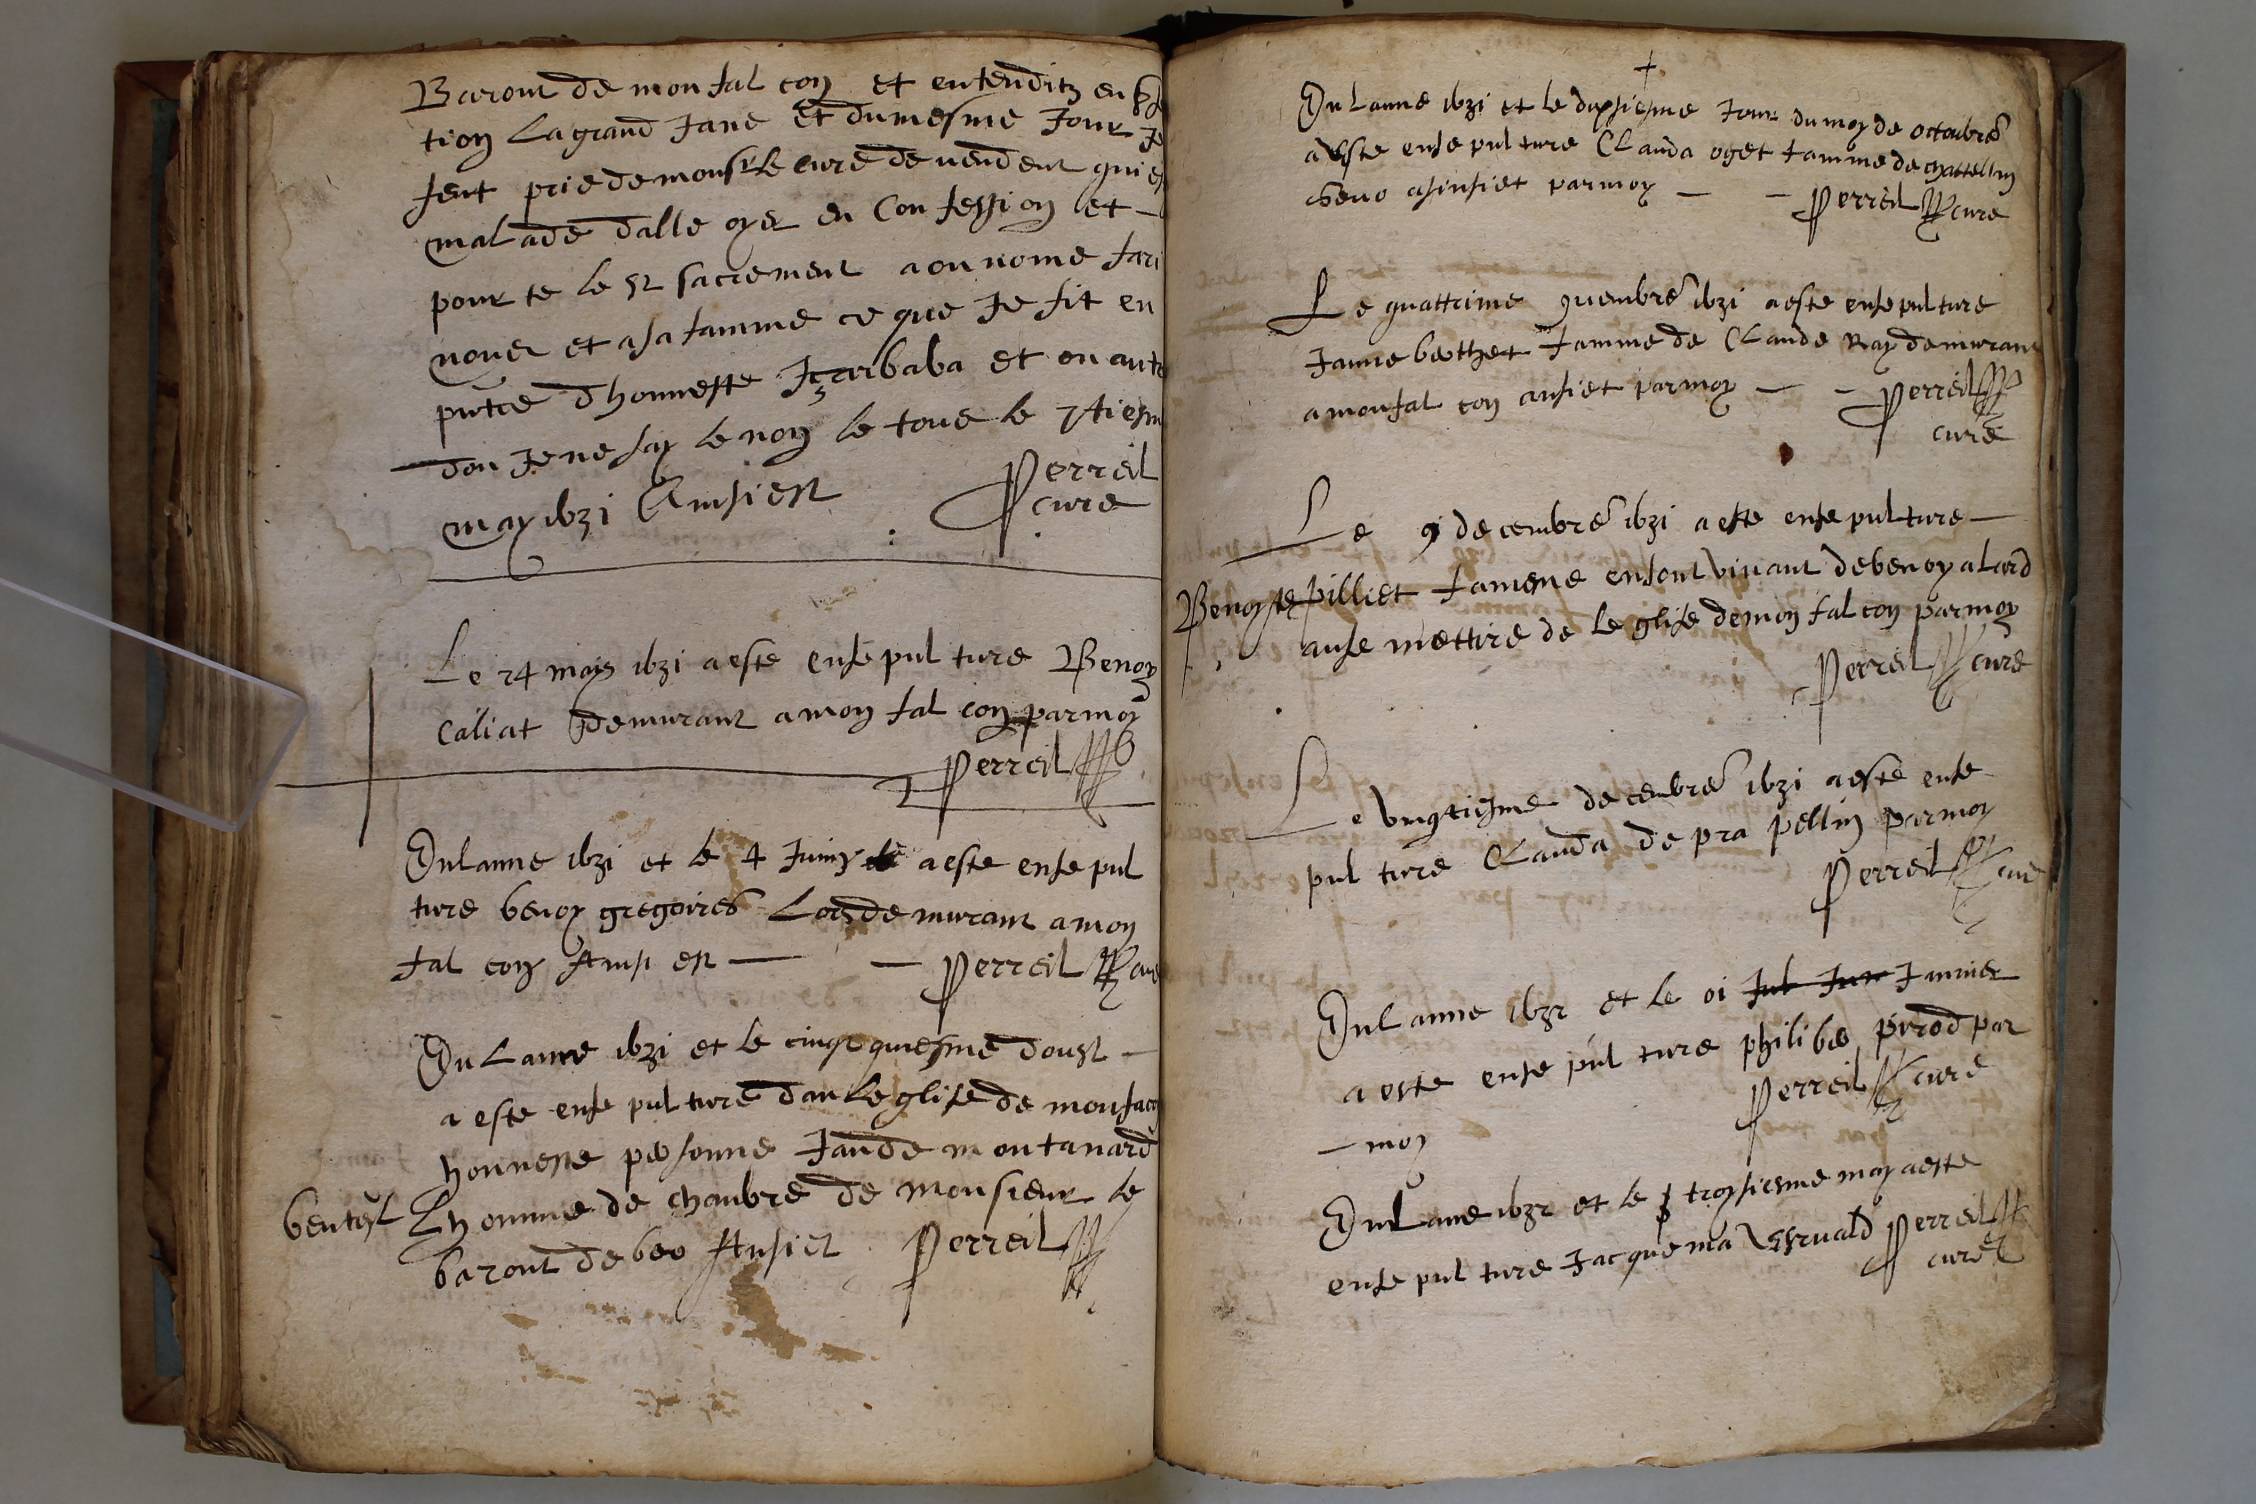 Baront de monfal con et entenditz en
tion La grand Jane Et du mesme Jour Je
feut prie de mons.r le cure de vendent qui es
malade dalle oyer en Confession et –
pourte le st sacrement a on nome fari
noyer et a sa famme ce que Je fit en
dhonneste et on autre
don Je ne say le non le tout le
may 1631 Ainsi est Perreil
cure
Le 24 may 1631 a este ensepulture Benoy
Caliat demurant a monfal con par moy
Perreil
En lanne 1631 et le 4 Juing a este ensepul
ture benoy gregoires demurant a mon
fal con Ainsi est — — Perreil cure
En Lanne 1631 et le cinqt quiesme doust –
a este ensepulture dan Leglise de monfacon
honneste personne Jan de montanard
Lhomme de chanbre de monsieur le
baront de Ansiet Perreil
En Lanne 1631 et le dixsiesme Jour du moy de octoubre
a este ensepulture Clauda oget famme de chattellin
asinsiet par moy — – Perreil cure
Le quattrime 9vembre 1631 a este ensepulture
Janne berthet famme de Claude Ray demurant
a monfal con ansiet par moy — – Perreil
cure
Le 9 decembre 1631 a este ensepulture —
Benoyste pilliet famene en sont vivant de benoy alard
au semettire de Leglise de monfalcon par moy
Perreil cure
Le vingtiesme decembre 1631 a este ense
pulture Clauda de pra pellin par moy
Perreil cure
En Lanne 1632 et le 01 Janvier
a este ensepulture philiber pirrod par
Perreil cure
– moy
En Lanne 1632 et le troysiesme may a este
ensepulture Jacquema Perreil
cure